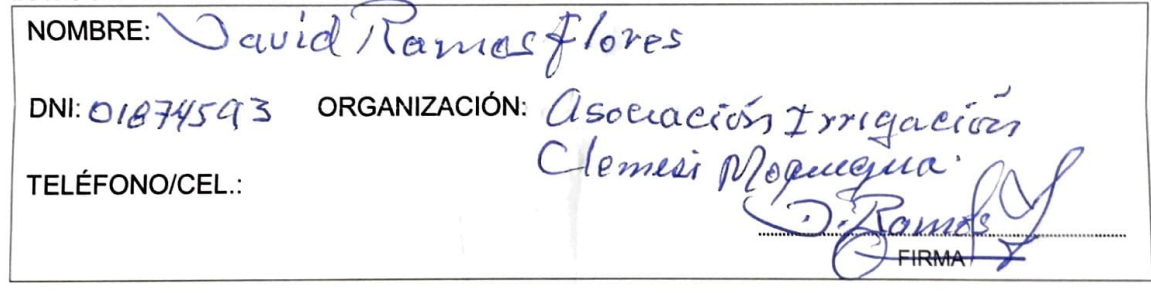 NOMBRE: David Ramos Flores
DNI: 01874593 ORGANIZACIÓN: Asociación Irrigación
Clemesi Moquegua.
TELÉFONO/CEL.:
D. Ramos F
FIRMA